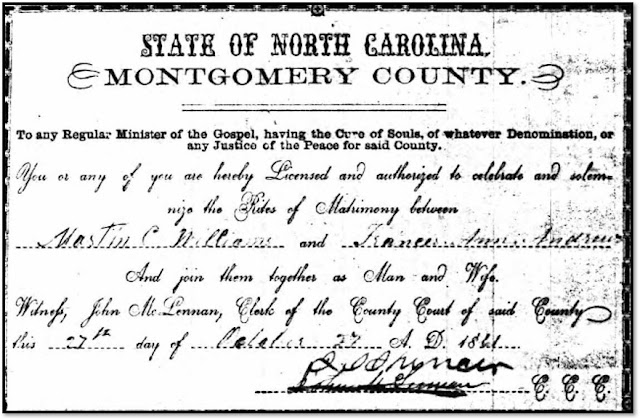 STATE OF NORTH CAROLINA,
MONTGOMERY COUNTY.
To any Regular Minister of the Gospel, having the Cure of Souls, of whatever Denomination, or
any Justice of the Peace for said County.
You or any of you are hereby Licensed and authorized to celebrate and solem-
nize the Rites of Matrimony between
Martin C Williams and Frances Ann Andrews
And join them together as Man and Wife.
Witness, John McLennan, Clerk of the County Court of said County
this 27th day of October 27 A. D. 1861
C C C